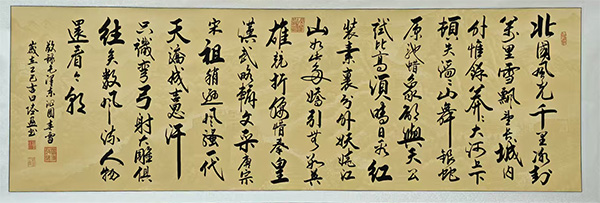 北國風光千里冰封
萬里雪飄望長城内
外惟餘莽々大河上下
頓失滔々山舞銀蛇
原馳蠟象欲與天公
試比高須晴日看紅
裝素裹分外妖嬈江
山如此多嬌引無數英
雄競折腰惜秦皇
漢武略輸文采唐宗
宋祖稍遜風騷一代
天驕成吉思汗
只識彎弓射大雕俱
往矣數風流人物
還看今朝
敬錄毛澤東沁園春雪
歲在乙巳吉日書